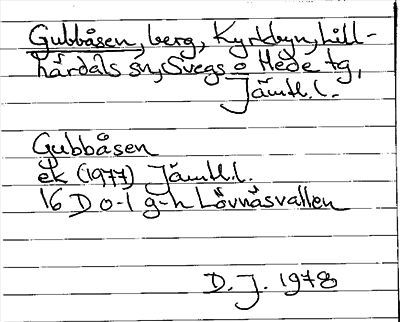 Gubbåsen, berg, Kyrkbyn, Lill-
härdals sn, Svegs o Hede tg,
Jämtl.l.
Gubbåsen
ek (1977) Jämtl.l.
16 D 0-1 g-h Lövnäsvallen
D. J. 1978